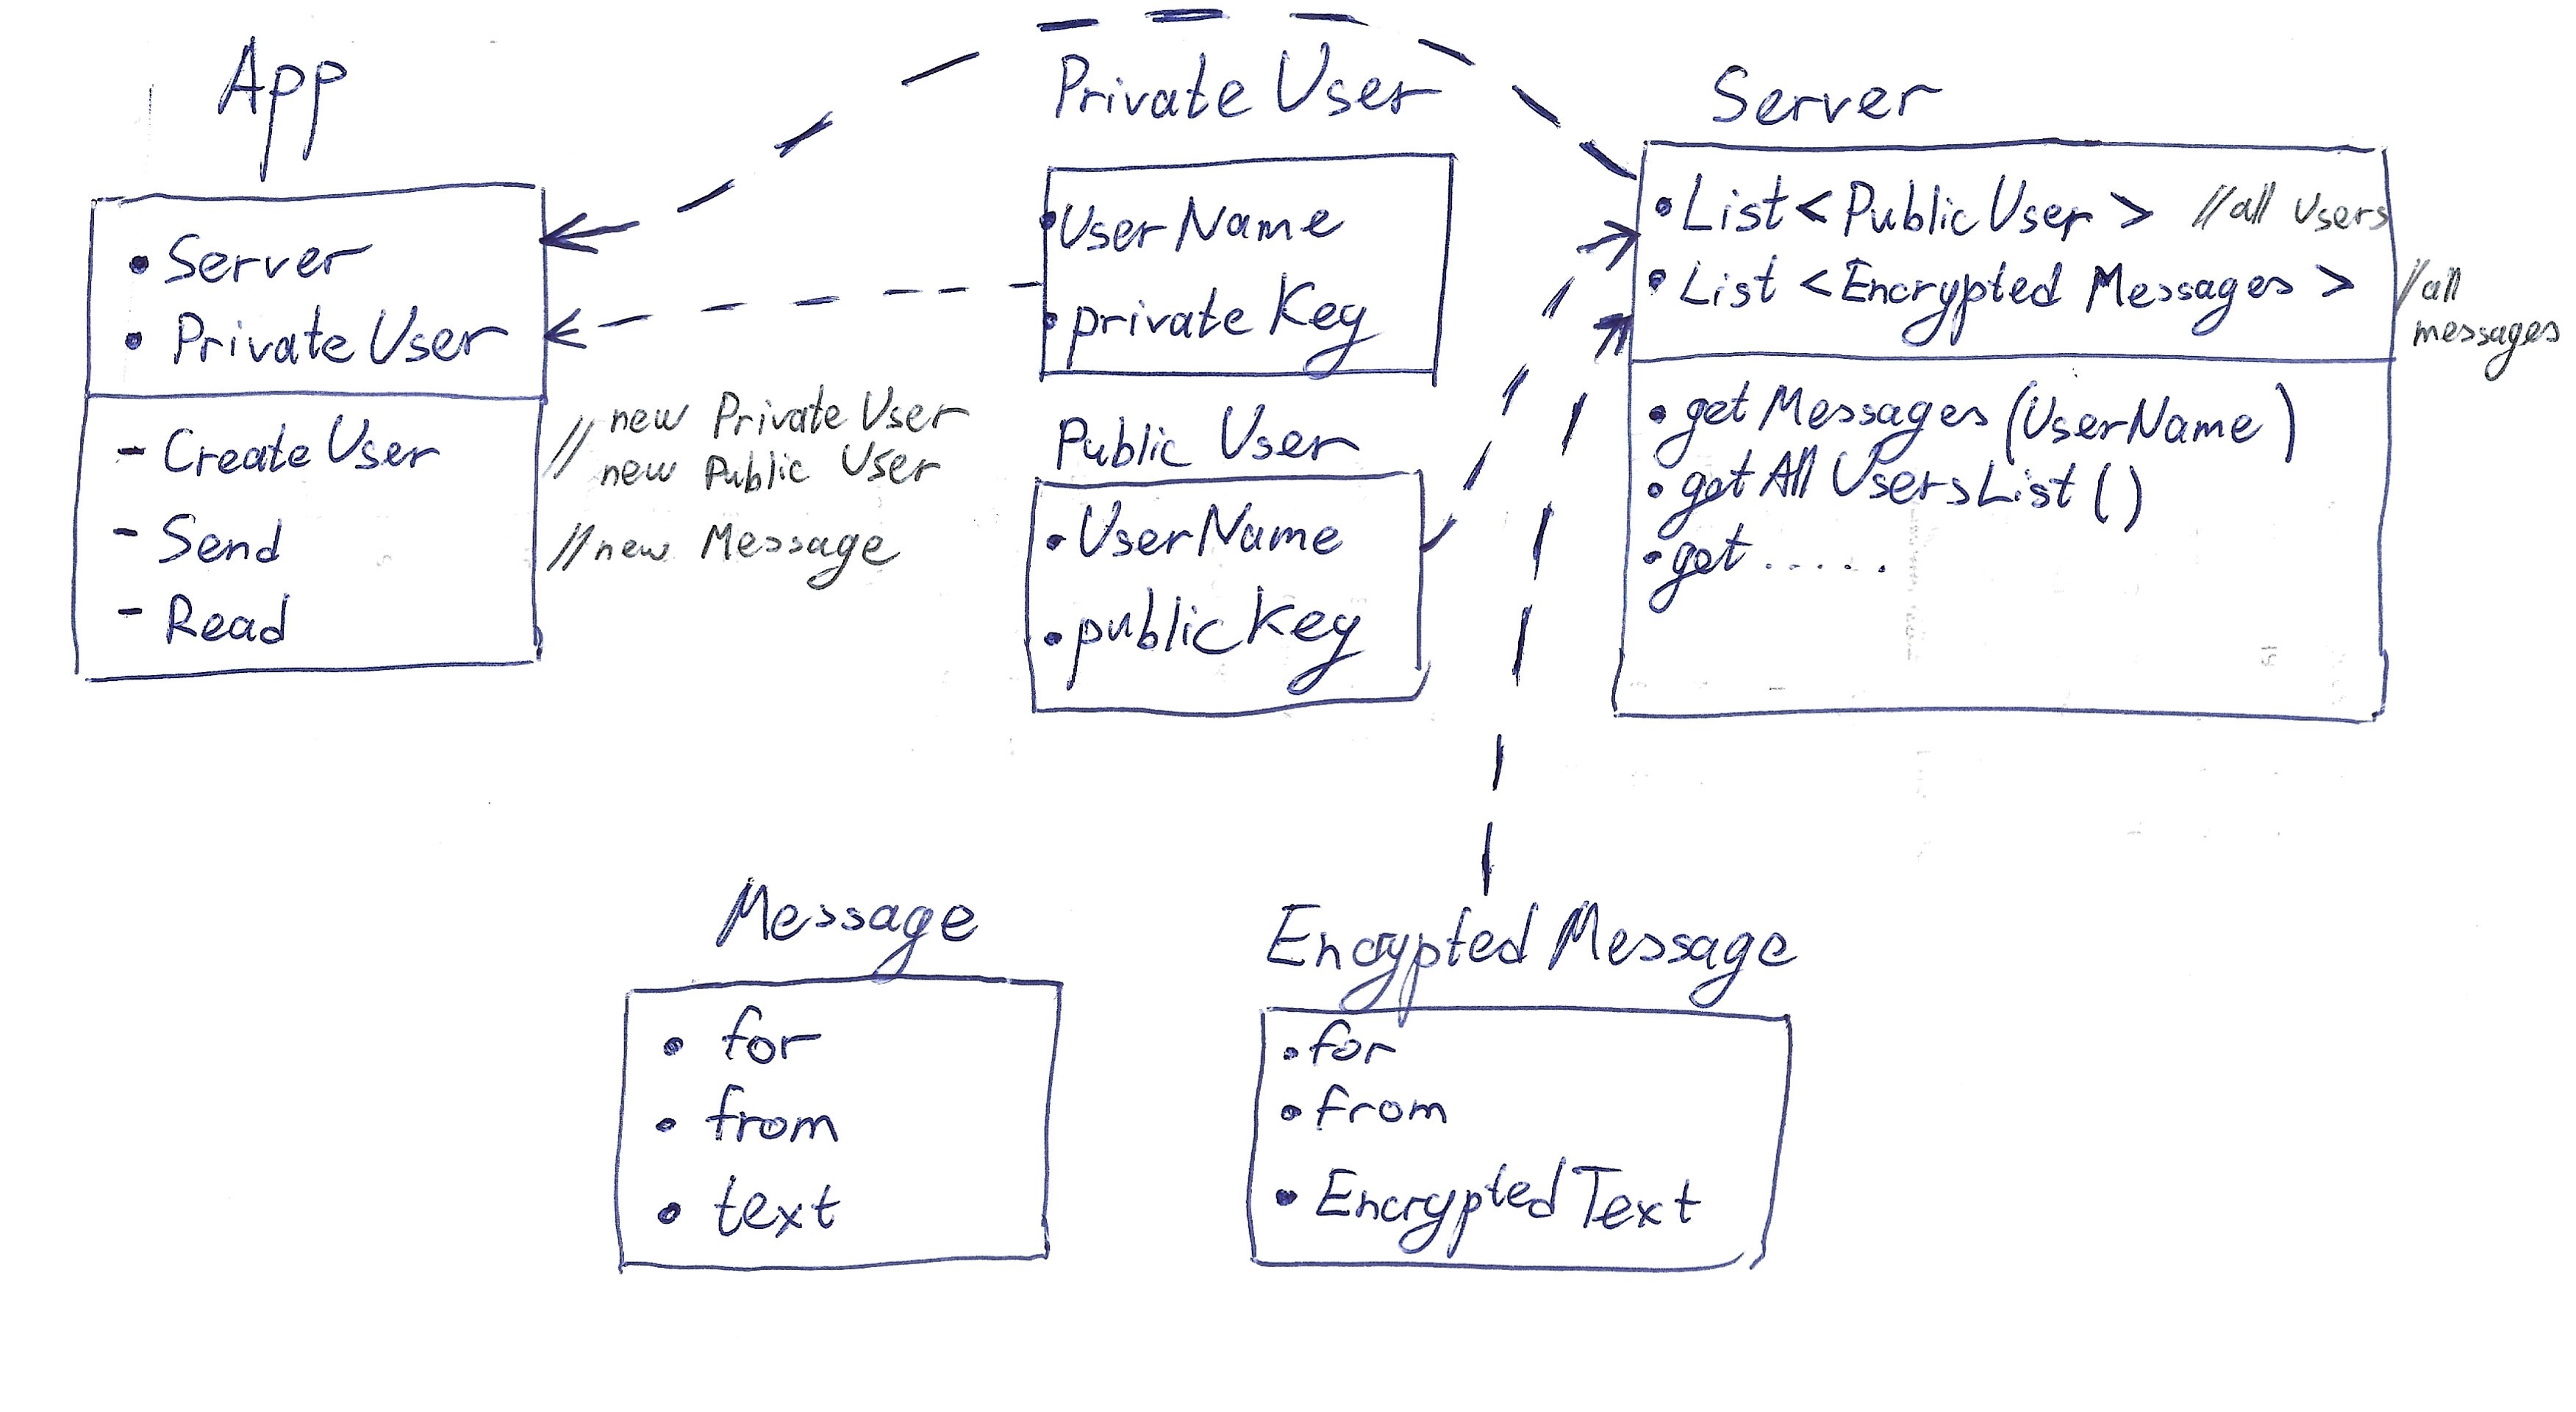 App
• Server
• PrivateUser
- CreateUser
- Send
- Read
// new PrivateUser
new Public User
//new Message
Private User
• UserName
• privateKey
Public User
• UserName
• publicKey
Server
• List<PublicUser> //all Users
• List <Encrypted Messages> //all
messages
• getMessages (UserName)
• getAllUsersList()
• get .....
Message
• for
• from
• text
Encrypted Message
• for
• from
• EncryptedText